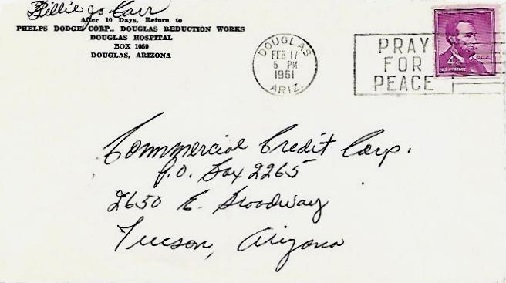 Billie Jo Carr
After 10 Days, Return to
PHELPS DODGE CORP., DOUGLAS REDUCTION WORKS
DOUGLAS HOSPITAL
BOX 1069
DOUGLAS, ARIZONA
DOUGLAS
FEB 17
5 PM
1961
ARIZ.
PRAY
FOR
PEACE
4¢
Commercial Credit Corp.
P.O. Box 2265
2650 E. Broadway
Tucson, Arizona